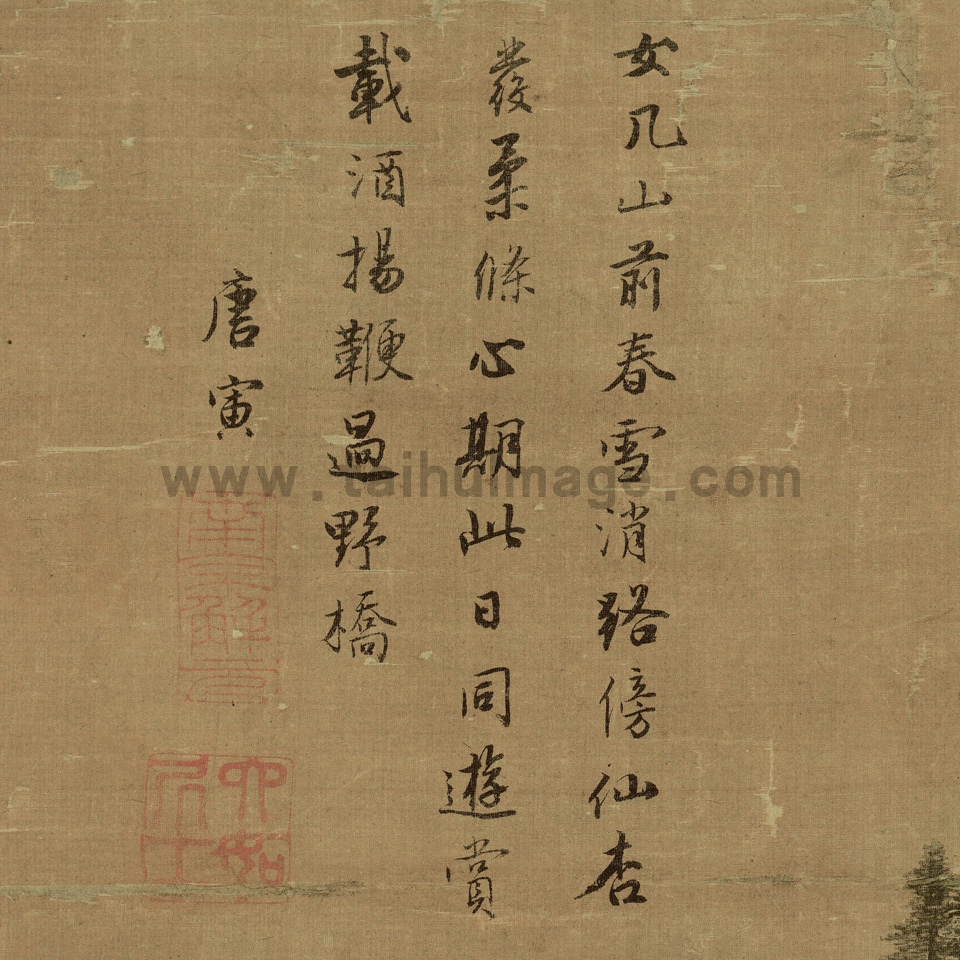 女几山前春雪消路傍仙杏
發柔條心期此日同遊賞
載酒揚鞭過野橋
唐寅
南京解元
六如居士
www.taihuimage.com